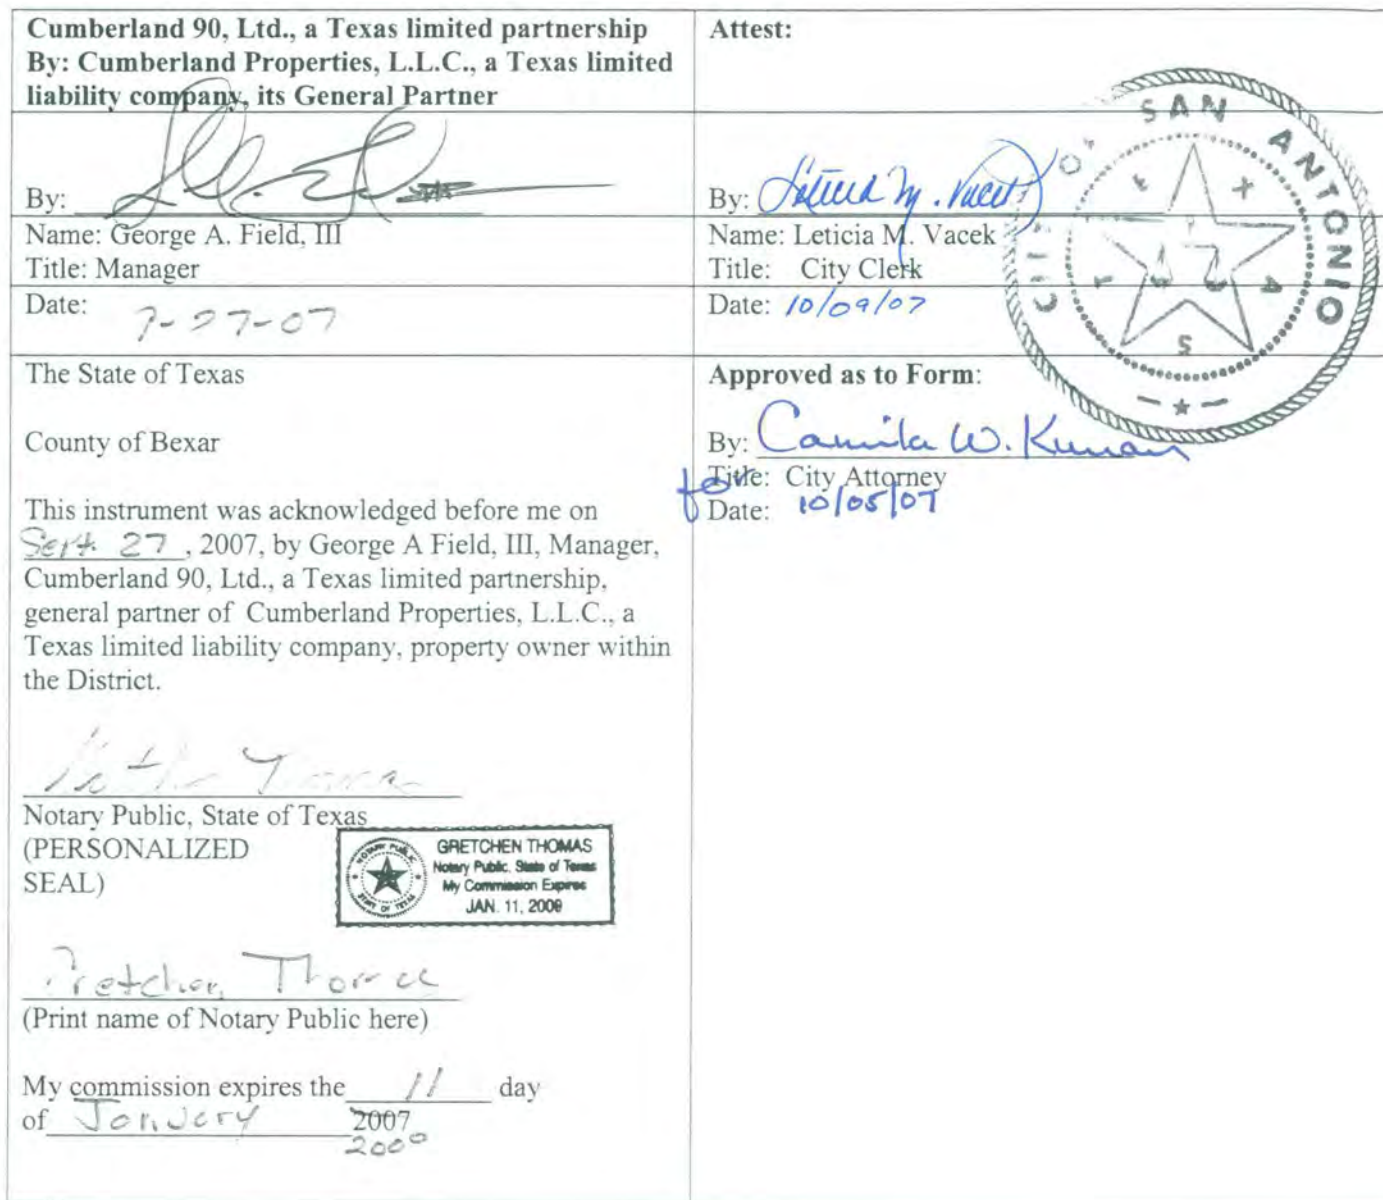 Cumberland 90, Ltd., a Texas limited partnership
By: Cumberland Properties, L.L.C., a Texas limited
liability company, its General Partner
By:
Name: George A. Field, III
Title: Manager
Date: 9-27-07
The State of Texas
County of Bexar
This instrument was acknowledged before me on
Sept. 27, 2007, by George A Field, III, Manager,
Cumberland 90, Ltd., a Texas limited partnership,
general partner of Cumberland Properties, L.L.C., a
Texas limited liability company, property owner within
the District.
Notary Public, State of Texas
(PERSONALIZED
SEAL)
NOTARY PUBLIC
STATE OF TEXAS
GRETCHEN THOMAS
Notary Public, State of Texas
My Commission Expires
JAN. 11, 2009
Gretchen Thomas
(Print name of Notary Public here)
My commission expires the 11 day
of January 2007
Attest:
By: Leticia M. Vacek
Name: Leticia M. Vacek
Title: City Clerk
Date: 10/09/07
CITY OF SAN ANTONIO
TEXAS
Approved as to Form:
By: Camila W. Kunau
for Title: City Attorney
Date: 10/05/07